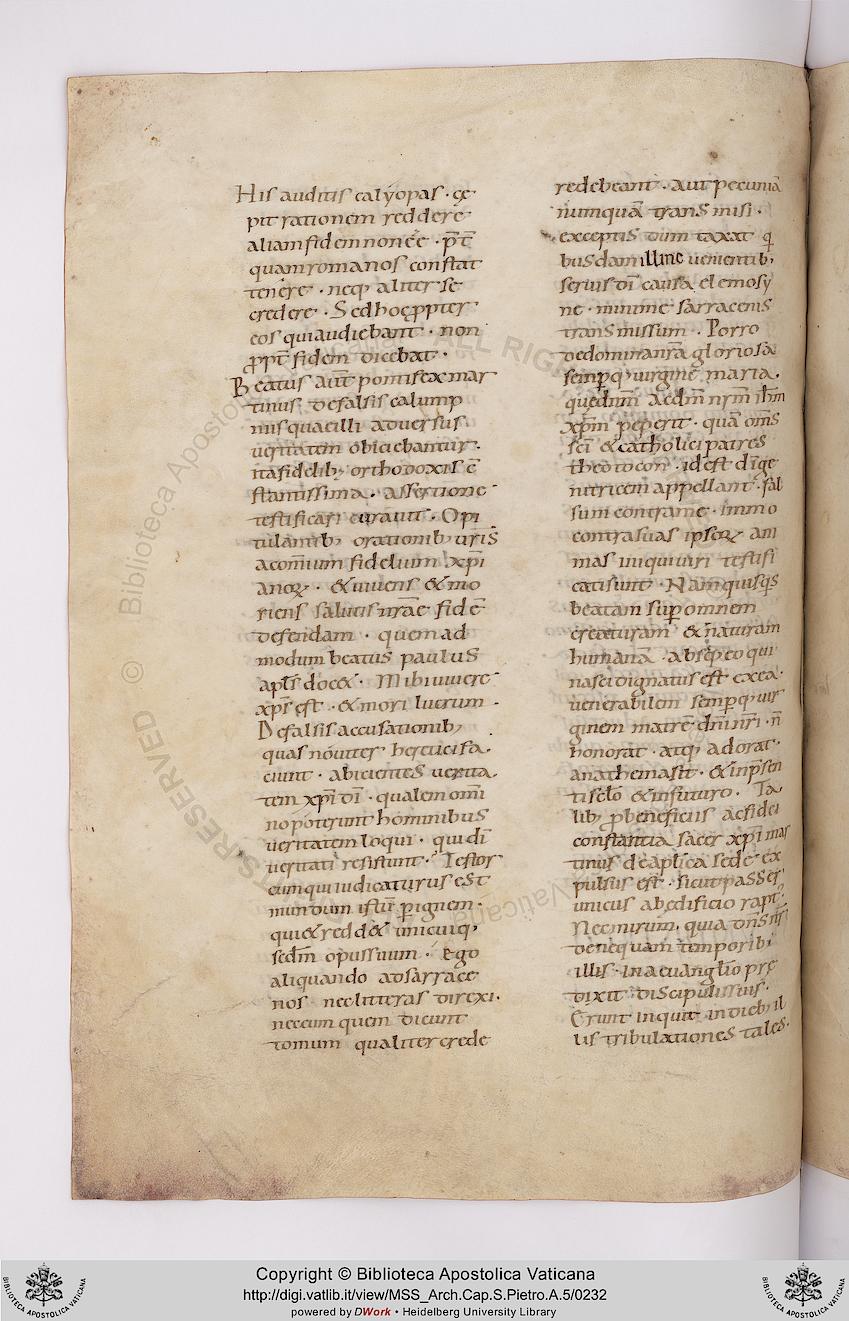 His auditis calyopas · cę
pit rationem reddere
aliam fidem non eē · p̄t̄
quam romanos constat
tenere · neq; aliter se
credere · Sed hoc ꝓpter
eos qui audiebant · non
ꝓpt̄ fidem dicebat ·
Beatus aut̄ pontifex mar
tinus · de falsis calump
niis quae illi adversus
veritatem obiciebantur ·
ita fidelib; orthodoxis c̄
stantissima · assertione
testificari curavit · Opi
tulantib; orationib; vris
ac om̄ium fidelium xp̄i
anoꝝ · & vivens & mo
riens salutis nrāe fidē
defendam · quem ad
modum beatus paulus
apl̄s doc& · Mihi vivere
xp̄s est · & mori lucrum ·
De falsis accusationib;
quas noviter heruci sa ·
ciunt · abicientes verita ·
tem xp̄i dī · qualem om̄i
no poterunt hominibus
veritatem loqui · qui dī
veritati resistunt · Testor
eum qui iudicaturus est
mundum istū ꝑ ignem ·
qui & redd& unicuiq;
sedm̄ opus suum · ego
aliquando ad sarrace
nos nec litteras direxi ·
nec cum quem dicunt
tomum qualiter crede
redebeant · aut pecuniā
numquā transmisi ·
exceptis dum taxat q̄
busdam illinc venientib;
servis dī causa elemosy
nę · minime sarracenis
transmissum · Porro
de domina nrā gloriosa
semp̄q; virginē maria ·
que dn̄m̄ ac dm̄ nrm̄ ihm̄
xp̄m peperit · quā om̄s
scī & catholici patres
theotocon · id est dī ge
nitricem appellant · fal
sum contra me · immo
contra suas ipsoꝝ ani
mas iniqui viri testifi
cati sunt · Nam quisq̄s
beatam sup̄ omnem
creaturam & naturam
humanā · absq; eo qui
nasci dignatus est ex ea ·
venerabilem semp̄q; vir
ginem matrē dn̄i nr̄i · n̄
honorat · atq; adorat ·
anathema sit · & in p̄sen
ti sclo & in futuro · Ta
lib; ꝓ beneficiis ac fidei
constantia sacer xp̄i mar
tinus de aplīca sede ex
pulsus est · sicut passer
unicus ab edificio rapt;
Nec mirum · quia dn̄s nr̄
de nequam temporib;
illis · in aevanglīo prę
dixit discipulis suis ·
Erunt inquit in dieb; il
lis tribulationes tales ·
Copyright © Biblioteca Apostolica Vaticana
http://digi.vatlib.it/view/MSS_Arch.Cap.S.Pietro.A.5/0232
powered by DWork • Heidelberg University Library
BIBLIOTECA APOSTOLICA VATICANA
BIBLIOTECA APOSTOLICA VATICANA